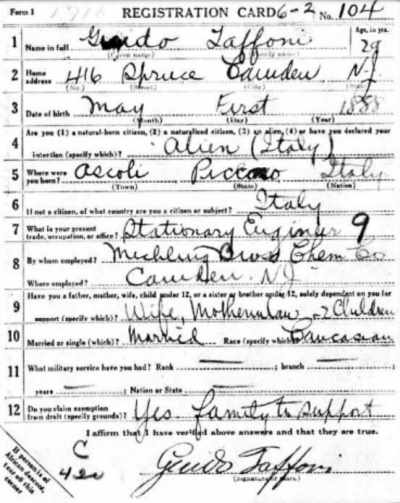 Form 1 REGISTRATION CARD 6-2 No. 104
1 Name in full Guido Taffoni Age, in yrs. 29
2 Home address 416 Spruce Camden N.J.
(No.) (Street) (City) (State)
3 Date of birth May First 1888
(Month) (Day) (Year)
4 Are you (1) a natural-born citizen, (2) a naturalized citizen, (3) an alien, (4) or have you declared your
intention (specify which)? Alien (Italy)
5 Where were you born? Ascoli Piccno Italy
(Town) (State) (Nation)
6 If not a citizen, of what country are you a citizen or subject? Italy
7 What is your present trade, occupation, or office? Stationary Engineer 9
8 By whom employed? Mechling Bros Chem Co
Where employed? Camden. N.J.
9 Have you a father, mother, wife, child under 12, or a sister or brother under 12, solely dependent on you for
support (specify which)? Wife, Motherinlaw 2 Children
10 Married or single (which)? Married Race (specify which)? Caucasian
11 What military service have you had? Rank ; branch ;
years ; Nation or State
12 Do you claim exemption from draft (specify grounds)? Yes. family to support
I affirm that I have verified above answers and that they are true.
C
420
Guido Taffoni
(Signature or mark)
If person is of African descent, tear off this corner